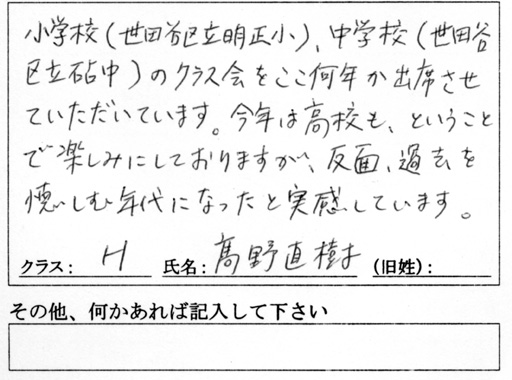 小学校(世田谷区立明正小)、中学校(世田谷
区立砧中)のクラス会をここ何年か出席させ
ていただいています。今年は高校も、ということ
で楽しみにしておりますが、反面、過去を
懐しむ年代になったと実感しています。
クラス: H 氏名: 髙野直樹 (旧姓):
その他、何かあれば記入して下さい